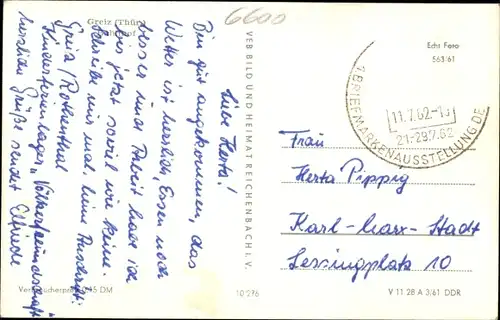 Greiz (Thür.)
Bahnhof
6600
Echt Foto
563/61
BRIEFMARKENAUSSTELLUNG DE
11.7.62-13
21.-29.7.62
Liebe Herta!
Bin gut angekommen, das
Wetter ist herrlich, Essen noch
besser und Arbeit habe ich
bis jetzt soviel wie keine.
Schreibe mir mal, meine Anschrift:
Greiz/Rothenthal
Kinderferienlager "Völkerfreundschaft"
herzliche Grüße sendet Elfriede
VEB BILD UND HEIMAT REICHENBACH I. V.
Frau
Herta Pippig
Karl-Marx-Stadt
Lessingplatz 10
Verbraucherpreis 0,15 DM
10 276
V 11 28 A 3/61 DDR